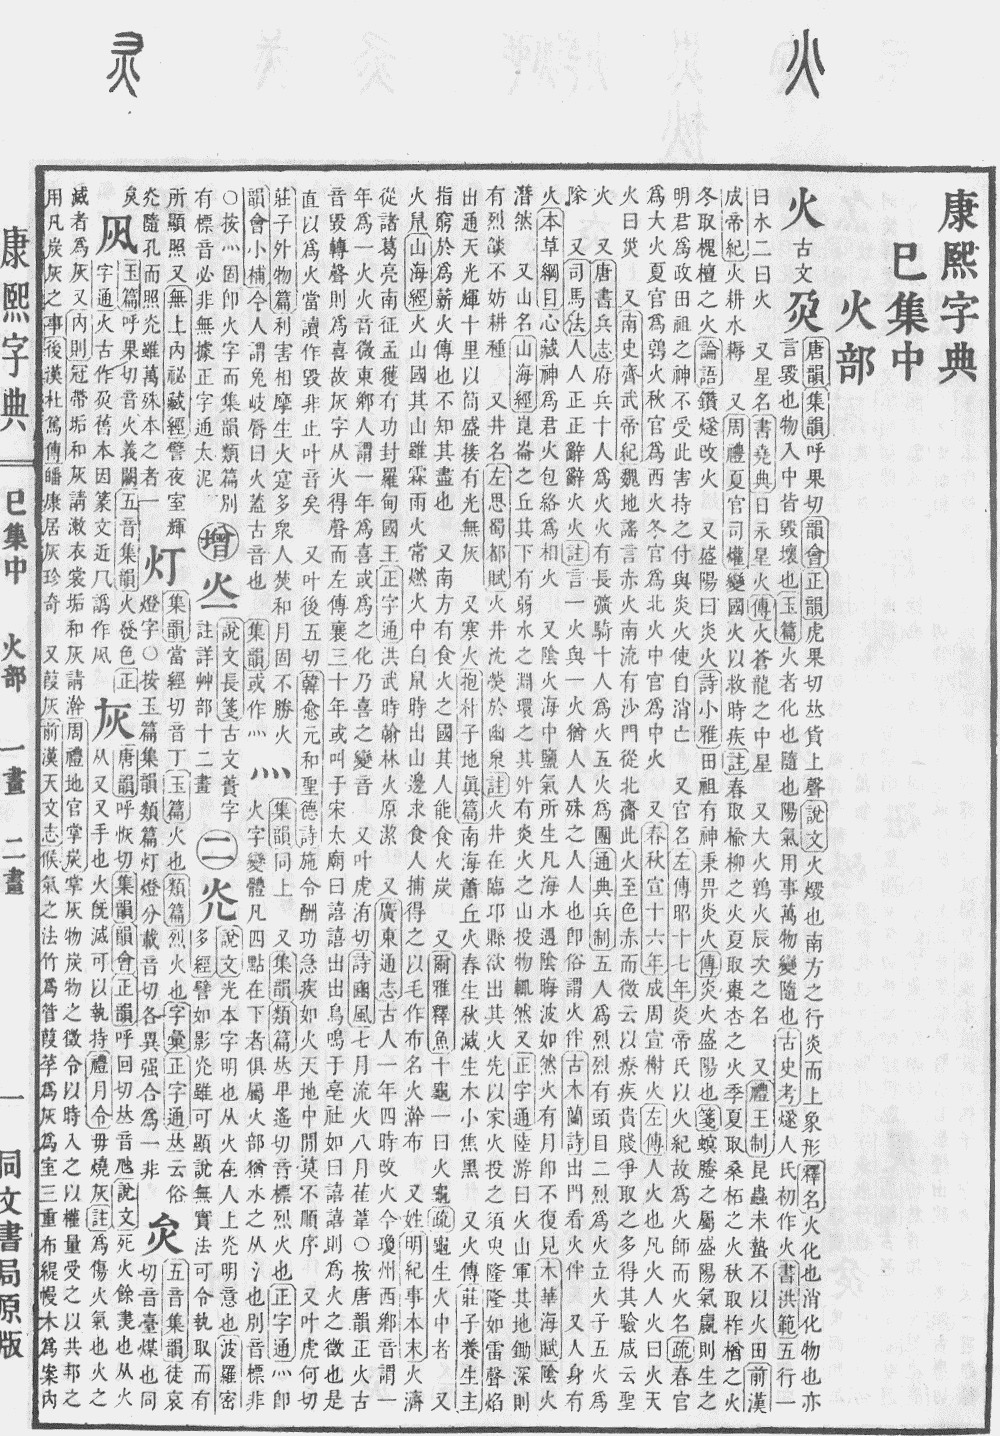 康熙字典
巳集中
火部
火 古文 𤆄 唐韻集韻呼果切韻會正韻虎果切𠀤貨上聲說文火燬也南方之行炎而上象形釋名火化也消化物也亦
言毀也物入中皆毀壞也玉篇火者化也隨也陽氣用事萬物變隨也古史考燧人氏初作火書洪範五行一
曰水二曰火 又星名書堯典日永星火傳火蒼龍之中星 又大火鶉火辰次之名 又禮王制昆蟲未蟄不以火田前漢
成帝紀火耕水耨 又周禮夏官司爟變國火以救時疾註春取楡柳之火夏取棗杏之火季夏取桑柘之火秋取柞楢之火
冬取槐檀之火論語鑽燧改火 又盛陽曰炎火詩小雅田祖有神秉畀炎火傳炎火盛陽也箋螟螣之屬盛陽氣嬴則生之
明君爲政田祖之神不受此害持之付與炎火使自消亡 又官名左傳昭十七年炎帝氏以火紀故爲火師而火名疏春官
爲大火夏官爲鶉火秋官爲西火冬官爲北火中官爲中火 又春秋宣十六年成周宣榭火左傳人火也凡火人火曰火天
火曰災 又南史齊武帝紀魏地謠言赤火南流有沙門從北齎此火至色赤而微云以療疾貴賤爭取之多得其驗咸云聖
火 又唐書兵志府兵十人爲火火有長彍騎十人爲火五火爲團通典兵制五人爲烈烈有頭目二烈爲火立火子五火爲
隊 又司馬法人人正正辭辭火火註言一火與一火猶人人殊之人人也卽俗謂火伴古木蘭詩出門看火伴 又人身有
火本草綱目心藏神爲君火包絡爲相火 又陰火海中鹽氣所生凡海水遇陰晦波如然火有月卽不復見木華海賦陰火
潛然 又山名山海經崑崙之丘其下有弱水之淵環之其外有炎火之山投物輒然又正字通陸游曰火山軍其地鋤深則
有烈燄不妨耕種 又井名左思蜀都賦火井沈熒於幽泉註火井在臨邛縣欲出其火先以家火投之須臾隆隆如雷聲焰
出通天光輝十里以筒盛接有光無灰 又寒火抱朴子地眞篇南海蕭丘火春生秋滅生木小焦黑 又火傳莊子養生主
指窮於爲薪火傳也不知其盡也 又南方有食火之國其人能食火炭 又爾雅釋魚十龜一曰火龜疏龜生火中者 又
火鼠山海經火山國其山雖霖雨火常燃火中白鼠時出山邊求食人捕得之以毛作布名火澣布 又姓明紀事本末火濟
從諸葛亮南征孟獲有功封羅甸國王正字通洪武時翰林火原潔 又廣東通志古人一年四時改火今瓊州西鄉音謂一
年爲一火火音微東鄉人謂一年爲喜或爲之化乃喜之變音 又叶虎洧切詩豳風七月流火八月萑葦○按唐韻正火古
音毀轉聲則爲喜故灰字从火得聲而左傳襄三十年或叫于宋太廟曰譆譆出出鳥鳴于亳社如曰譆譆則爲火之徵也是
直以爲火當讀作毀非止叶音矣 又叶後五切韓愈元和聖德詩施令酬功急疾如火天地中閒莫不順序 又叶虎何切
莊子外物篇利害相摩生火寔多衆人焚和月固不勝火
韻會小補今人謂兔岐脣曰火蓋古音也 集韻或作灬
灬 集韻同上 又集韻類篇𠀤卑遙切音標烈火也正字通灬卽
火字變體凡四點在下者俱屬火部猶水之从氵也別音標非
○按灬固卽火字而集韻類篇別
有標音必非無據正字通太泥
增
說文長箋古文蕡字
註詳艸部十二畫
二
灮 說文光本字明也从火在人上灮明意也波羅密
多經譬如影灮雖可顯說無實法可令執取而有
所顯照又無上內祕藏經譬夜室輝
灮隨孔而照灮雖萬殊本之者一
灯 集韻當經切音丁玉篇火也類篇烈火也字彙正字通𠀤云俗
燈字○按玉篇集韻類篇灯燈分載音切各異强合爲一非
五音集韻徒哀
切音臺煤也同
炱
凨 玉篇呼果切音火義闕五音集韻火發色正
字通火古作𤆄舊本因篆文近𠘨譌作凨
灰 唐韻呼恢切集韻韻會正韻呼回切𠀤音虺說文死火餘㶳也从火
从又又手也火旣滅可以執持禮月令毋燒灰註爲傷火氣也火之
滅者爲灰又內則冠帶垢和灰請漱衣裳垢和灰請澣周禮地官掌炭掌灰物炭物之徵令以時入之以權量受之以共邦之
用凡炭灰之事後漢杜篤傳皤康居灰珍奇 又葭灰前漢天文志候氣之法竹爲管葭莩爲灰爲室三重布緹幔木爲案內
康熙字典 巳集中 火部 一畫 二畫 一 同文書局原版